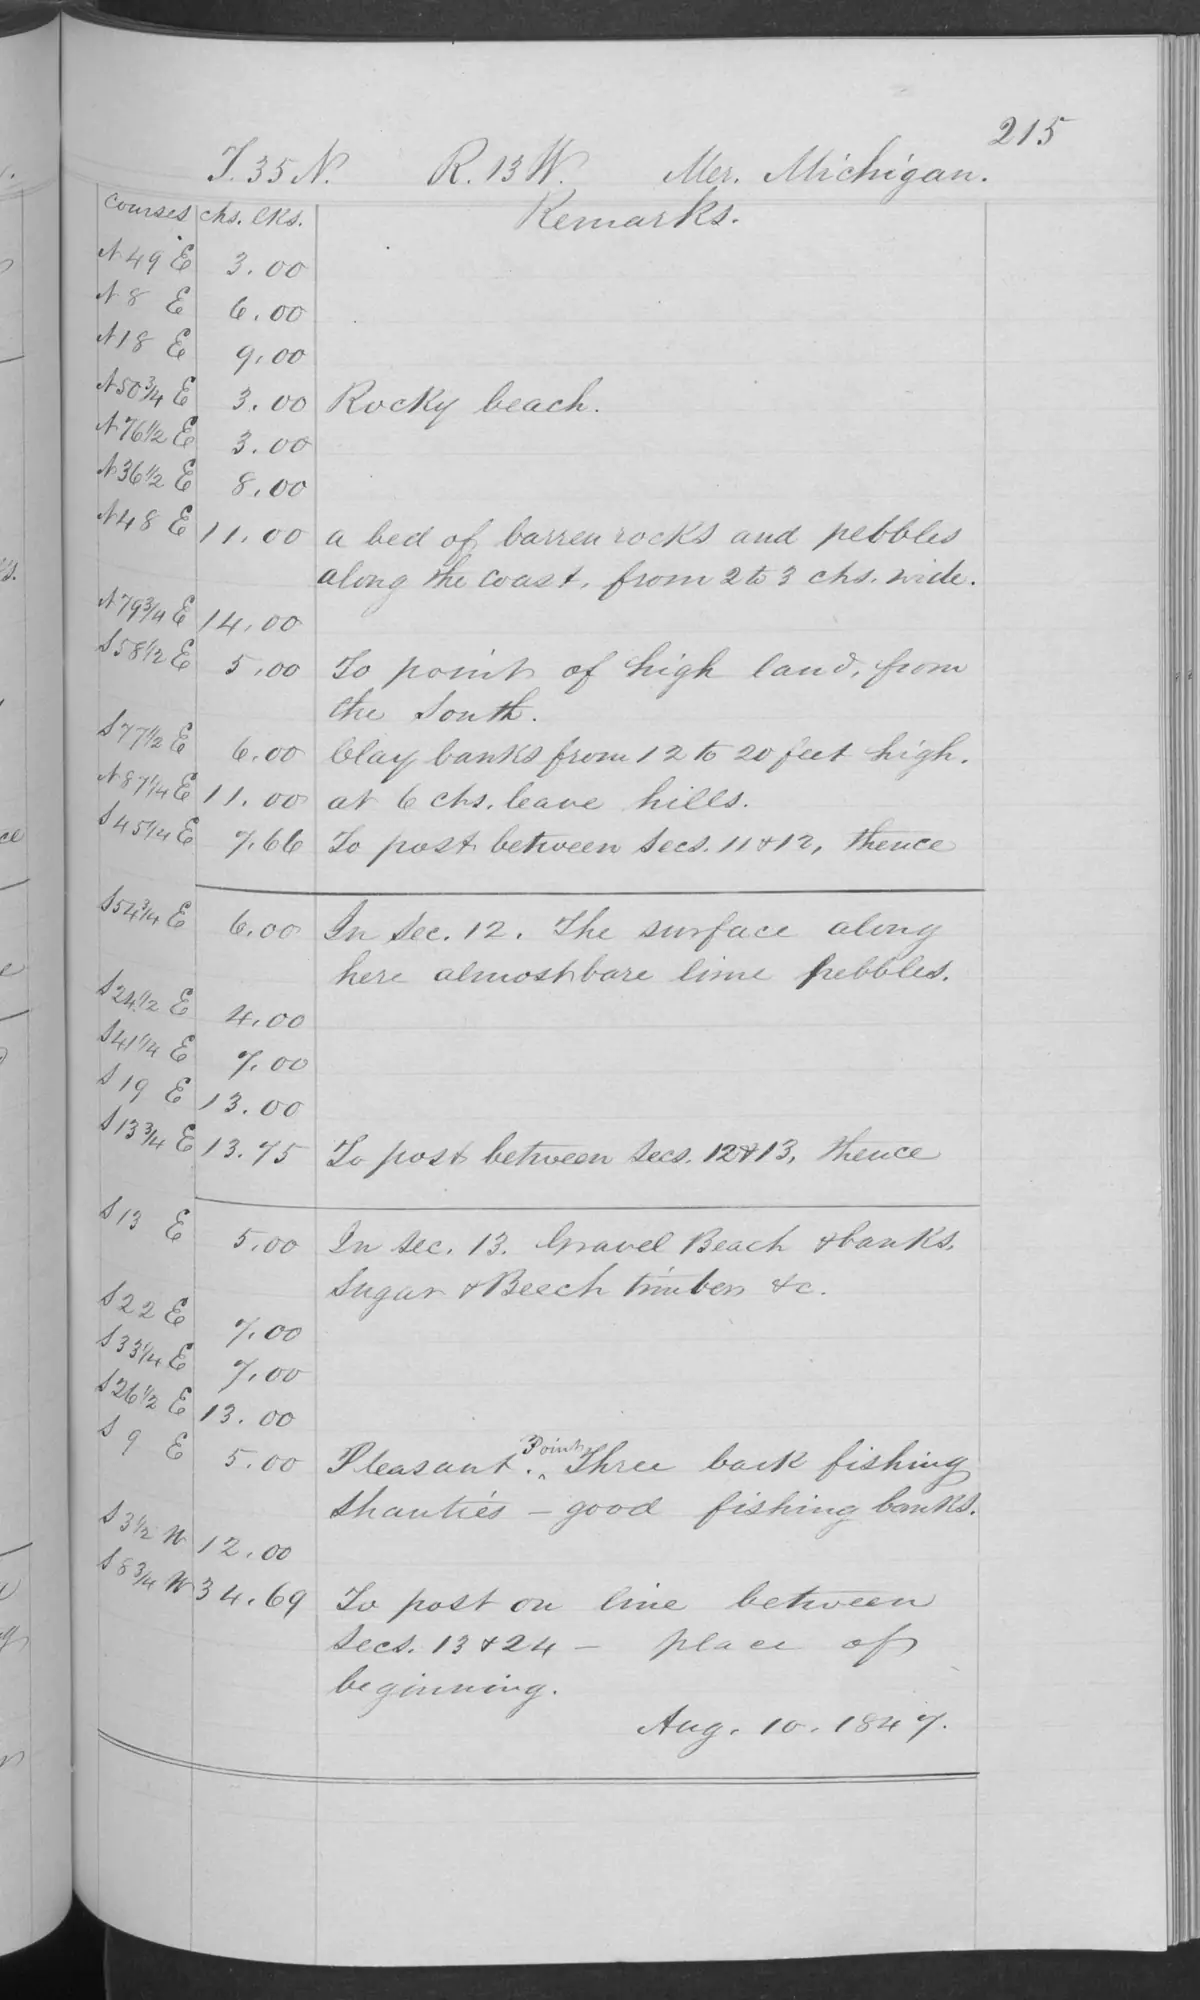 215
T. 35 N. R. 13 W. Mer. Michigan.
Courses chs. lks. Remarks.
N 49 E 3.00
N 8 E 6.00
N 18 E 9.00
N 50 3/4 E 3.00 Rocky beach.
N 76 1/2 E 3.00
N 36 1/2 E 8.00
N 48 E 11.00 a bed of barren rocks and pebbles
along the coast, from 2 to 3 chs. wide.
N 79 3/4 E 14.00
S 58 1/2 E 5.00 To point of high land, from
the South.
S 77 1/2 E 6.00 Clay banks from 12 to 20 feet high.
N 87 1/4 E 11.00 at 6 chs. leave hills.
S 45 1/4 E 7.66 To post between Secs. 11 & 12, thence
S 54 3/4 E 6.00 In Sec. 12. The surface along
here almost bare lime pebbles.
S 24 1/2 E 4.00
S 41 1/4 E 7.00
S 19 E 13.00
S 13 3/4 E 13.75 To post between Secs. 12 & 13, thence
S 13 E 5.00 In Sec. 13. Gravel Beach & banks.
Sugar & Beech timber &c.
S 22 E 7.00
S 33 1/4 E 7.00
S 26 1/2 E 13.00
S 9 E 5.00 Pleasant Point. Three bark fishing
Shanties — good fishing banks.
S 3 1/2 W 12.00
S 8 3/4 W 34.69 To post on line between
Secs. 13 & 24 — place of
beginning.
Aug. 10. 1847.